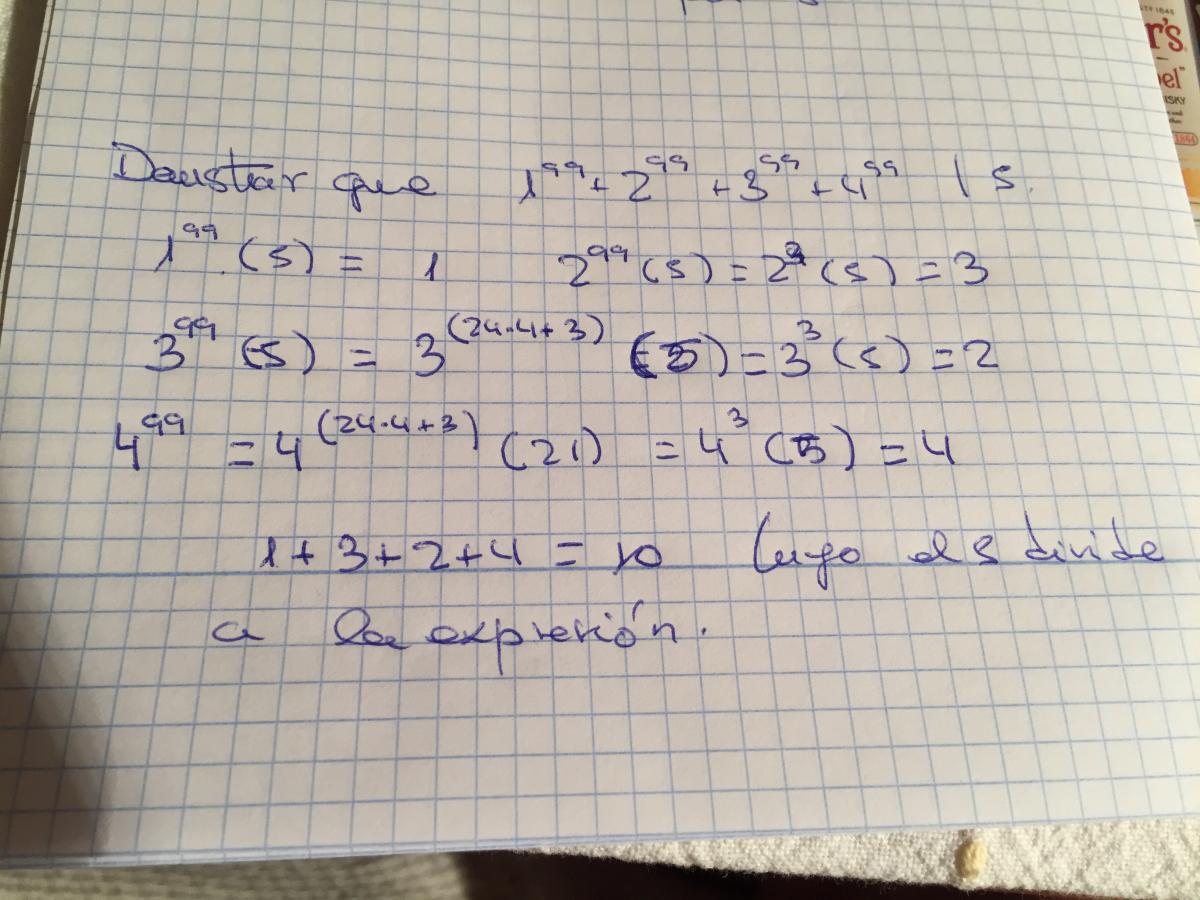 Demostrar que 1^99 + 2^99 + 3^99 + 4^99 | 5.
1^99 (5) = 1 2^99 (5) = 2^3 (5) = 3
3^99 (5) = 3^(24·4+3) (5) = 3^3 (5) = 2
4^99 = 4^(24·4+3) (21) = 4^3 (5) = 4
1 + 3 + 2 + 4 = 10 luego el 5 divide
a la expresión.
r's
bel
ISKY